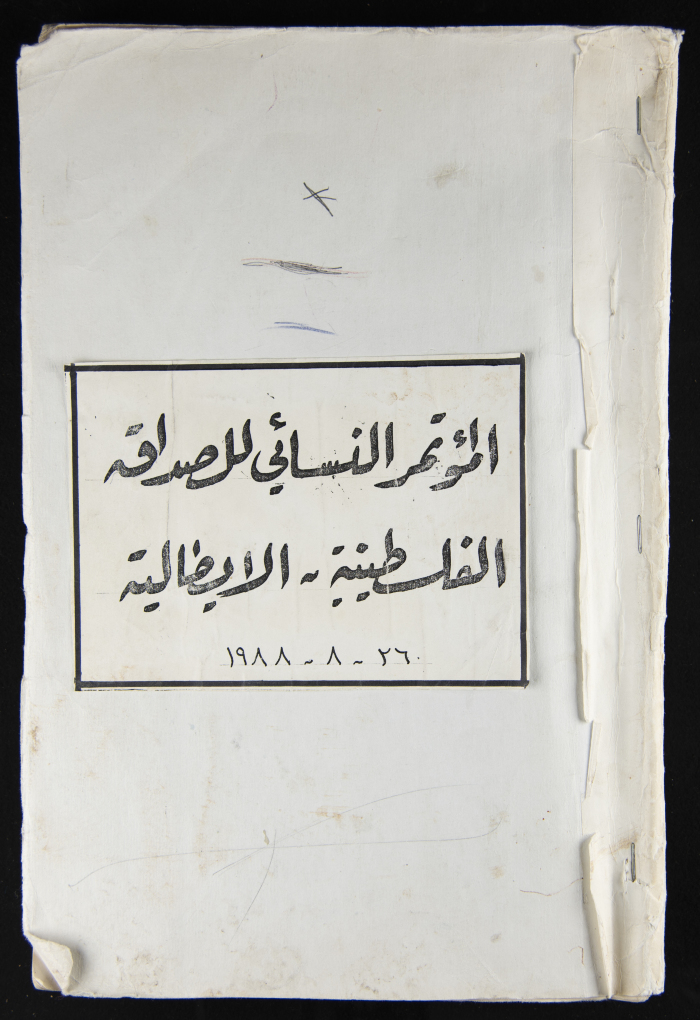 المؤتمر النسائي للصداقه
الفلسطينية - الايطالية
٢٦ - ٨ - ١٩٨٨